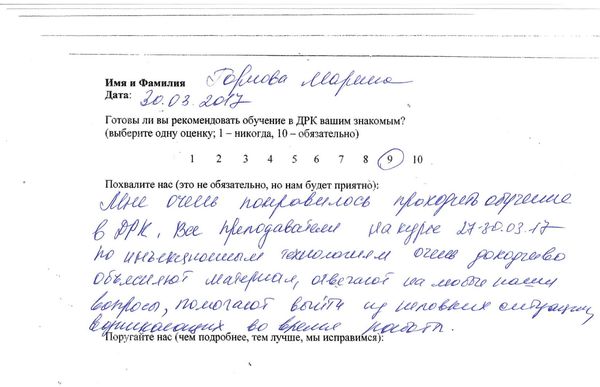 Имя и Фамилия Горлова Марина
Дата: 30.03.2017
Готовы ли вы рекомендовать обучение в ДРК вашим знакомым?
(выберите одну оценку; 1 – никогда, 10 – обязательно)
1 2 3 4 5 6 7 8 9 10
Похвалите нас (это не обязательно, но нам будет приятно):
Мне очень понравилось проходить обучение
в ДРК. Все преподаватели на курсе 27-30.03.17
по инъекционным технологиям очень доходчиво
объясняют материал, отвечают на любые наши
вопросы, помогают выйти из неловких ситуаций,
возникающих во время работы.
Поругайте нас (чем подробнее, тем лучше, мы исправимся):